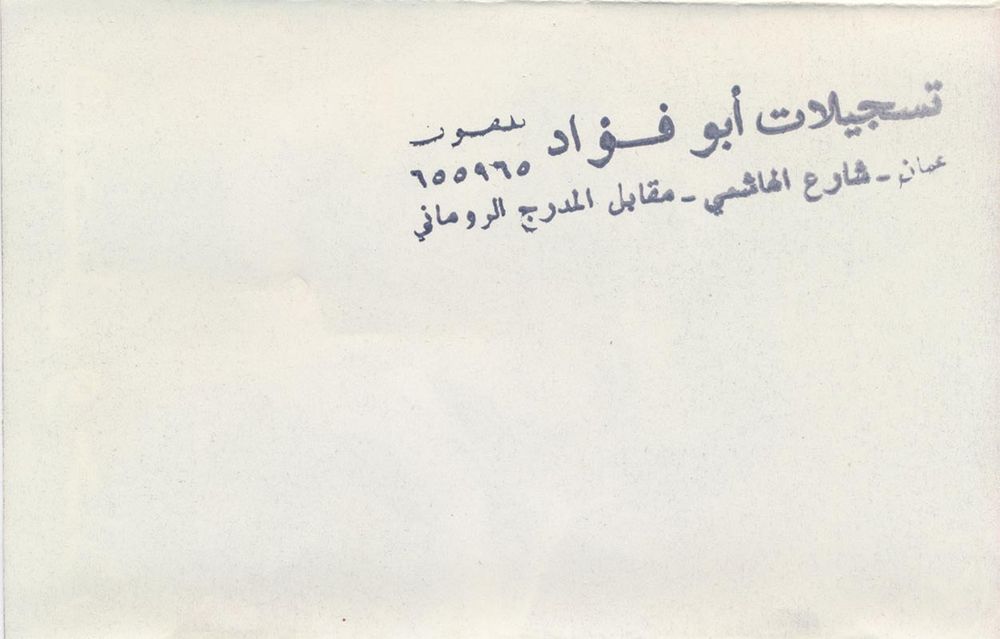 تسجيلات أبو فؤاد تلفون
٦٥٥٩٦٥
عمان - شارع الهاشمي - مقابل المدرج الروماني